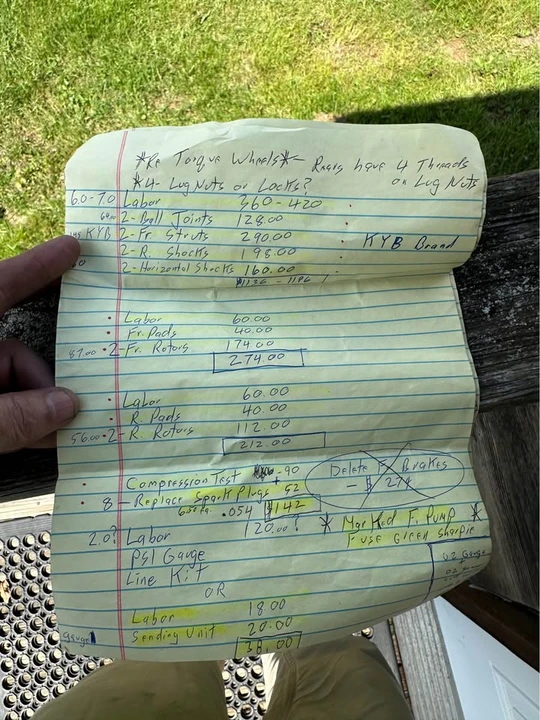 *Re Torque Wheels* - Rears have 4 Threads
on Lug Nuts
*4 - Lug Nuts or Locks?
6.0-7.0 Labor 360-420
64.00 2-Ball Joints 128.00
145 KYB 2-Fr. Struts 290.00 KYB Brand
2-R. Shocks 198.00
2-Horizontal Shocks 160.00
$1136 - 1196
Labor 60.00
Fr. Pads 40.00
87.00 2-Fr. Rotors 174.00
274.00
Labor 60.00
R. Pads 40.00
56.00 2-R. Rotors 112.00
212.00
Compression Test 90
Delete F. Brakes
- $ 274
8 - Replace Spark Plugs + 52
.054 $142
2.0? Labor 120.00?
* Marked F. Pump *
Fuse Green Sharpie
PSI Gauge
Line Kit
OR
Labor 18.00
Sending Unit 20.00
gauge 38.00